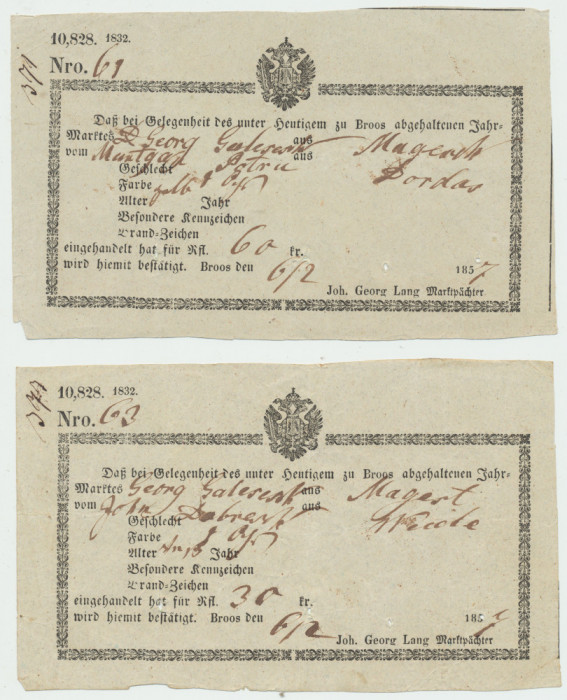 371
10,828. 1832.
Nro. 61
Daß bei Gelegenheit des unter Heutigem zu Broos abgehaltenen Jahr-
Marktes D Georg aus
vom aus
Geschlecht 1
Farbe
Alter Jahr
Besondere Kennzeichen
Brand-Zeichen
eingehandelt hat für Rfl. 60 kr.
wird hiemit bestätigt. Broos den 6/2 1857
Joh. Georg Lang Marktpächter
10,828. 1832.
Nro. 63
Daß bei Gelegenheit des unter Heutigem zu Broos abgehaltenen Jahr-
Marktes Georg aus
vom John aus
Geschlecht 1
Farbe
Alter Jahr
Besondere Kennzeichen
Brand-Zeichen
eingehandelt hat für Rfl. 30 kr.
wird hiemit bestätigt. Broos den 6/2 1857
Joh. Georg Lang Marktpächter